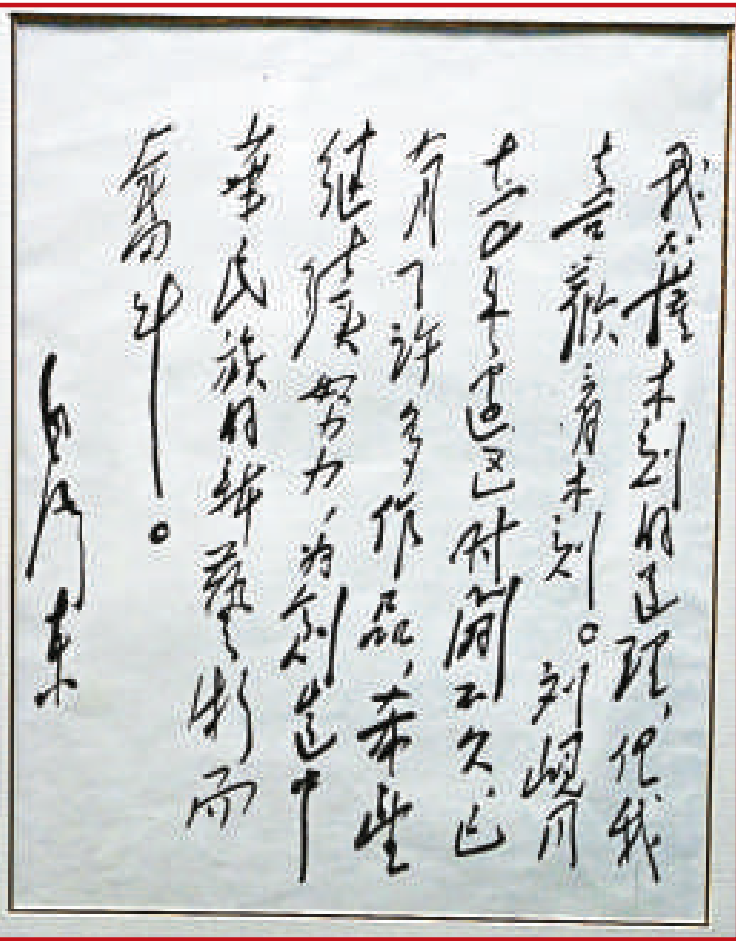 我不懂木刻的道理，但我
喜歡看木刻。刘峴同
志边区时間不久，已
有了許多作品，希望
继續努力，为創造中
華民族的新藝術而
奮斗。
毛澤東